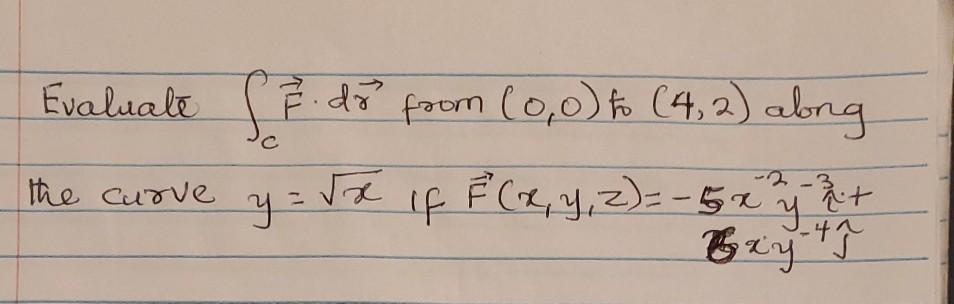 Evaluate ∫_C F⃗ · dr⃗ from (0,0) to (4,2) along
the curve y = √x if F⃗(x,y,z) = -5x⁻²y⁻³î +
xy⁻⁴ĵ